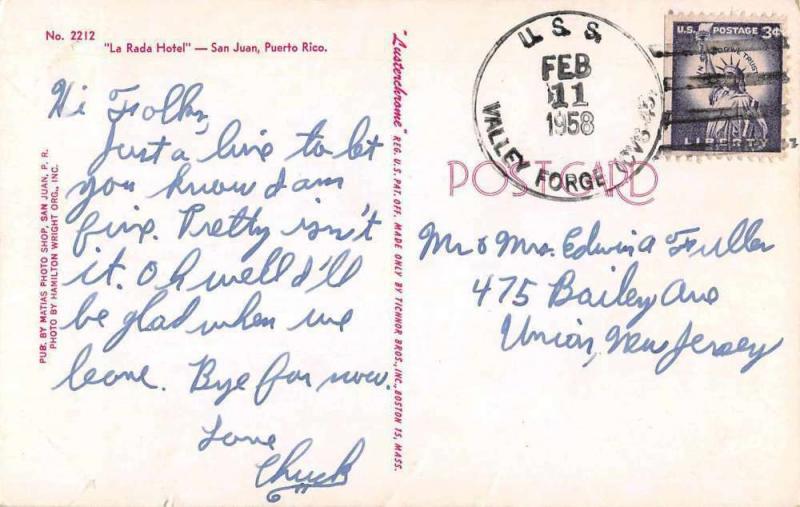 No. 2212
"La Rada Hotel" — San Juan, Puerto Rico.
Hi Folks,
Just a line to let
you know I am
fine. Pretty isn't
it. Oh well I'll
be glad when we
leave. Bye for now.
Love
Chuck
PUB. BY MATIAS PHOTO SHOP, SAN JUAN, P. R.
PHOTO BY HAMILTON WRIGHT ORG., INC.
"Lusterchrome" REG. U.S. PAT. OFF. MADE ONLY BY TICHNOR BROS., INC., BOSTON 15, MASS.
U. S. S.
FEB
11
1958
VALLEY FORGE
U.S. POSTAGE 3¢
IN GOD WE TRUST
LIBERTY
POST CARD
Mr & Mrs. Edwin A Fuller
475 Bailey Ave
Union, New Jersey